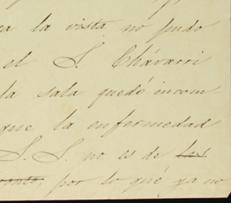 a la vista no pudo
el S. Chávarri
la sala quedó incom
que la enfermedad
S. S. no es de los
por lo qué ya no